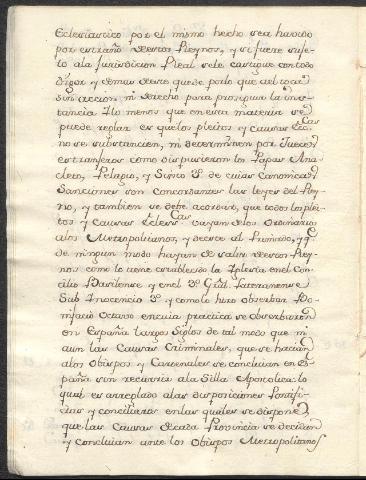 Eclesiastico por el mismo hecho sea havido
por estraño destos Reynos, y si fuere suje-
to ala Jurisdicion Real se le castigue con todo
Rigor y demas desto quede por lo que al toca
sin accion ni derecho para proseguir la ins-
tancia Ylo menos que en esta materia se
puede reglar es que los pleitos y Causas Ecc.cas
no se substancien, ni determinen por Jueces
estrangeros como dispusieron los Papas Ana-
cleto, Pelagio, y Sixto 3º de cuias Canonicas
Sanciones son concordantes las leyes del Rey-
no, y tambien se debe acordar, que todos los plei-
tos y Causas Ecles.cas vayan delos Ordinarios
alos Metropolitanos, y de este al Primado, y q.e
de ningun modo hayan de salir destos Rey-
nos como lo tiene establecido la Yglesia en el Con-
cilio Basilense y en el 3º Gral. Lateranense
Sub Inocencio 3º y como lo hizo observar Bo-
nifacio Octavo en cuia practica se observaron
en España largos Siglos de tal modo que ni
aun las Causas Criminales, que se hacian
alos Obispos y Cardenales se concluian en Es-
paña sin recurrir ala Silla Apostolica: lo
qual es arreglado alas disposiciones Pontifi-
cias y conciliares en las quales se dispone,
que las Causas de cada Provincia se decidan
y concluian ante los Obispos Metropolitanos